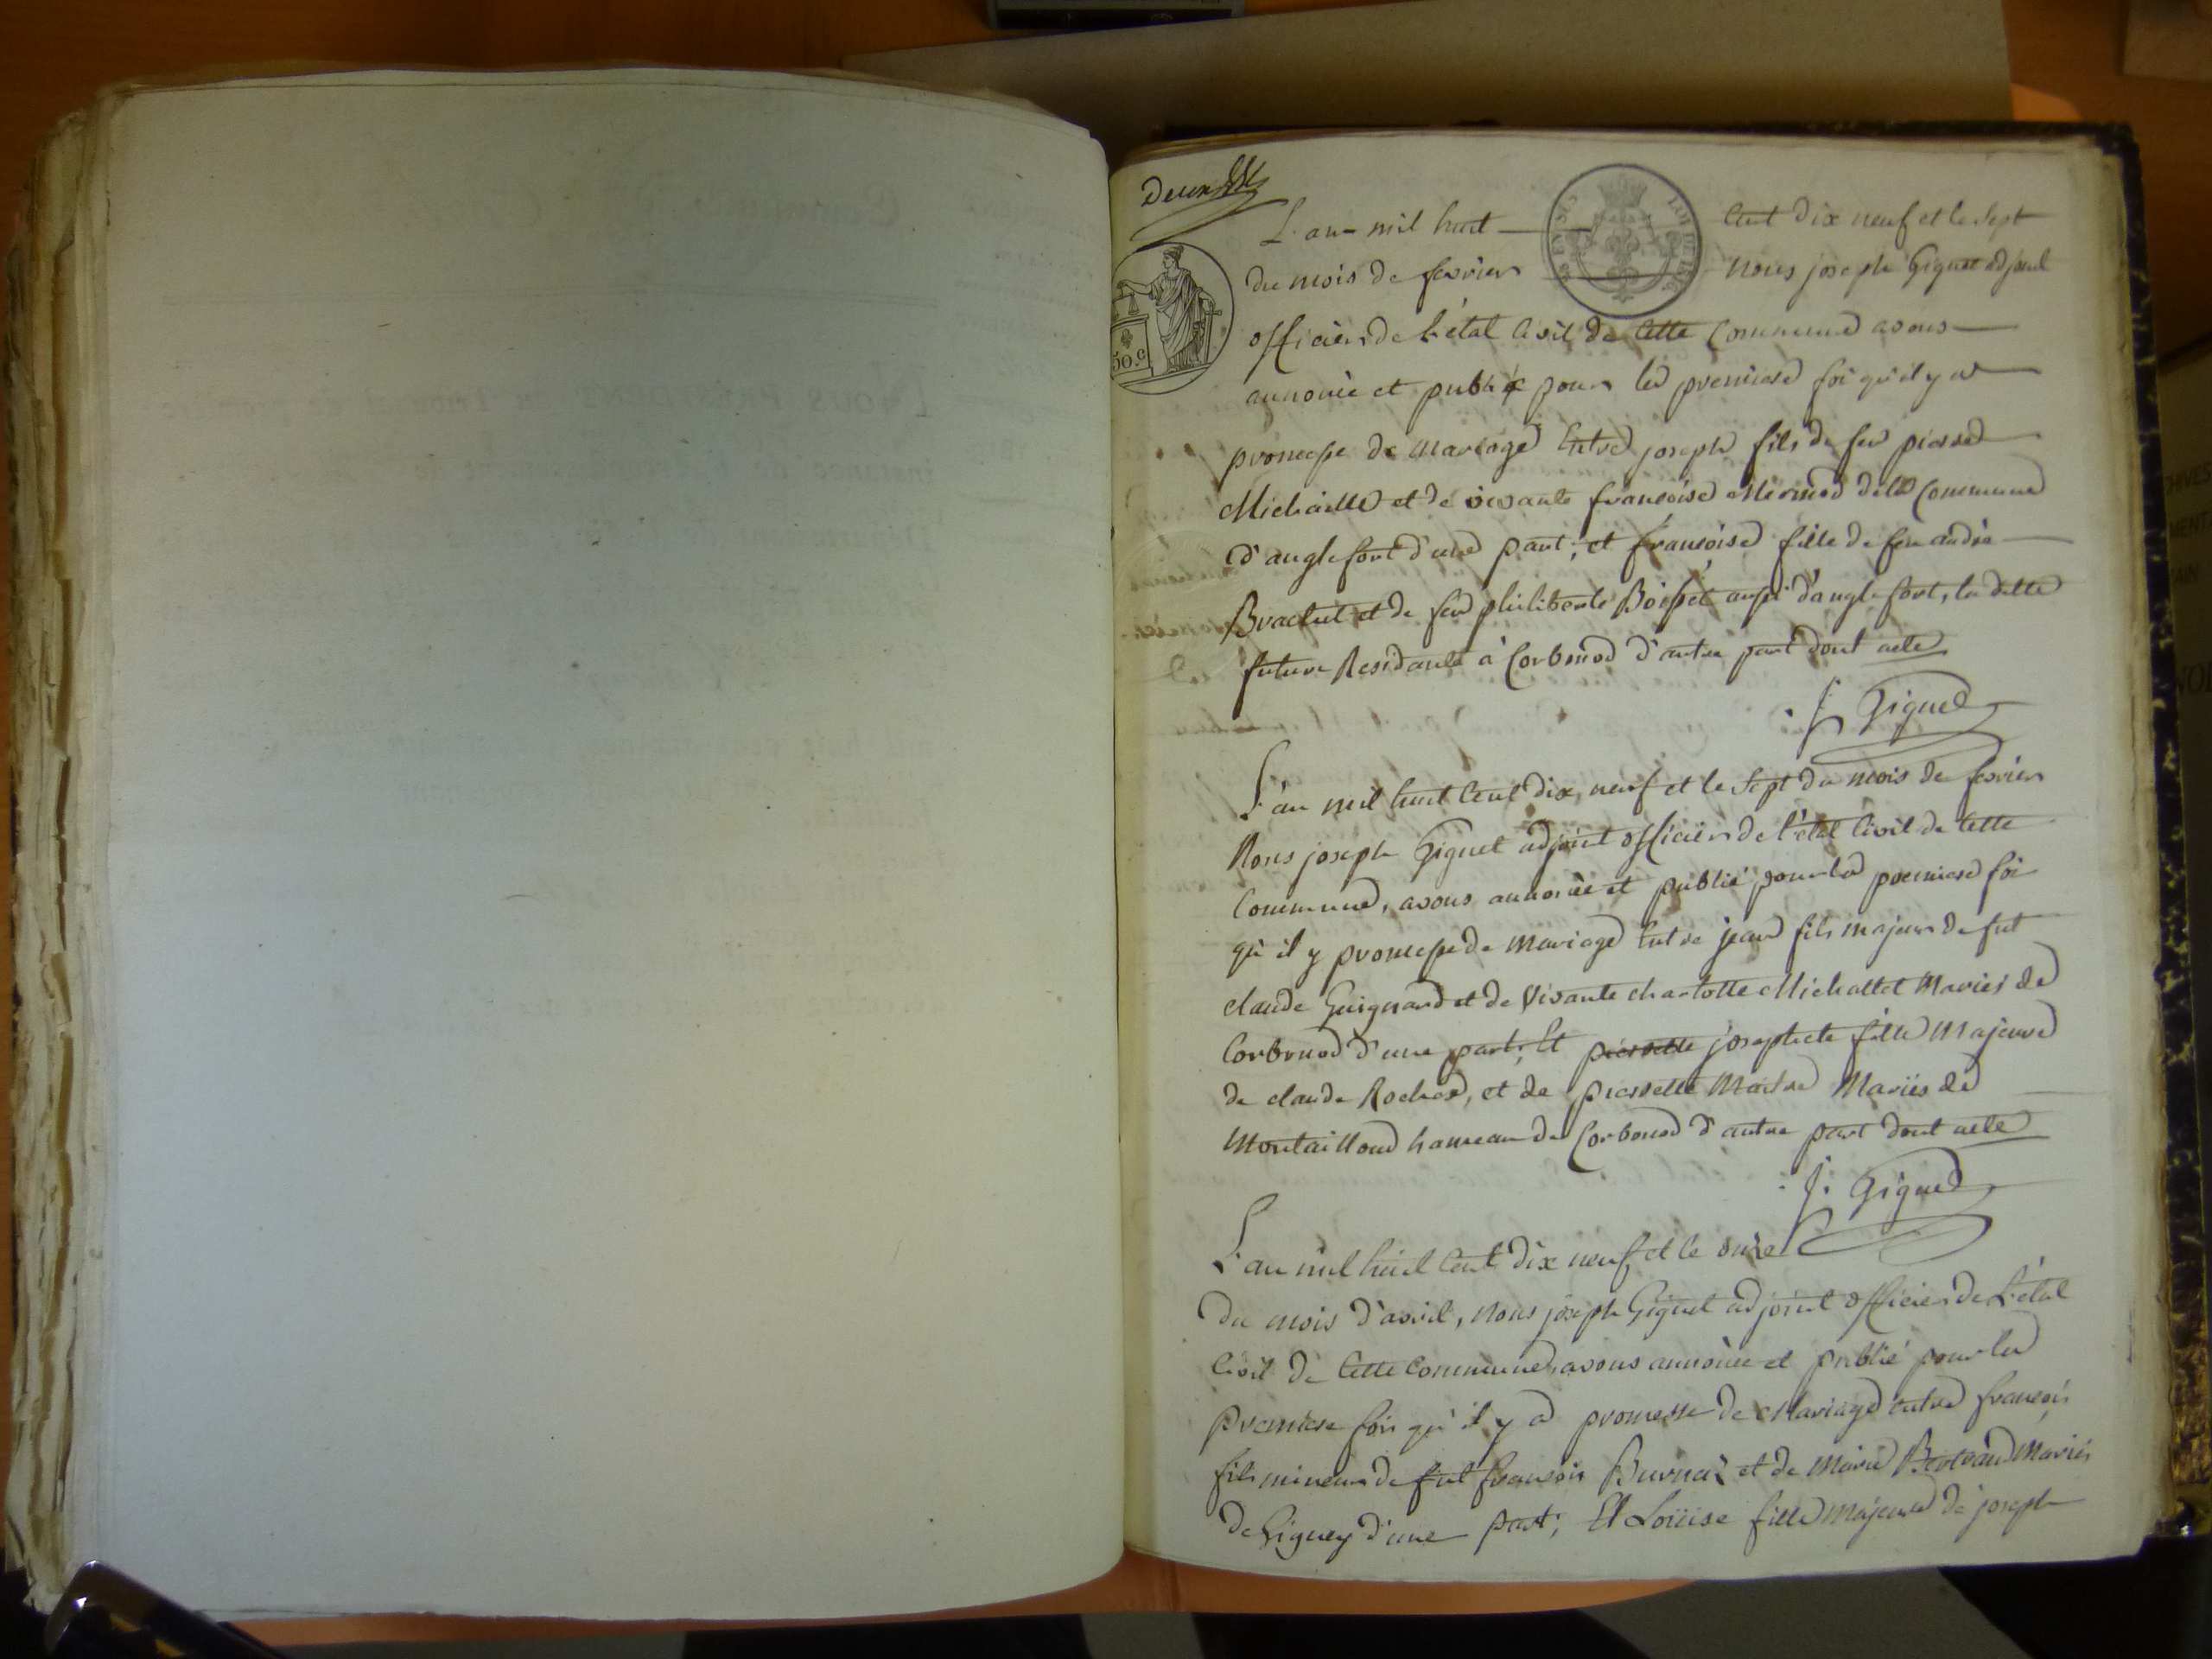 Deux
L'an mil huit cent dix neuf et le sept
du mois de fevrier nous joseph Giguet adjoint
officier de l'état Civil de Cette Commune avons
annoncé et publié pour la premiere foi qu'il y a
promesse de mariage Entre joseph fils de feu pierre
Michaille et de vivante francoise Mermod de la Commune
d'anglefort d'une part; et francoise fille de feu andré
Brachet et de feu philiberte Boisset aussi d'anglefort, la ditte
future Residante à Corbonod d'autre part dont acte
J. Giguet
L'an mil huit Cent dix neuf et le sept du mois de fevrier
Nous joseph Giguet adjoint officier de l'état Civil de Cette
Commune, avons annoncé et publié pour la premiere foi
qu'il y promesse de mariage Entre jean fils majeur de fut
claude Guignard et de Vivante charlotte Michallet Mariés de
Corbonod d'une part; Et pierrette josephete fille Majeure
de claude Rochex, et de pierrette Maitre Mariés de
Montailloud hameau de Corbonod d'autre part dont acte
J. Giguet
L'an mil huit Cent dix neuf et le onze
du mois d'avril, nous joseph Giguet adjoint officier de L'état
Civil de Cette Commune, avons annoncé et publié pour la
Premiere fois qu'il y a promesse de Mariage Entre francois
fils mineur de fut francois Burnaz et de Marie Bertrand Mariés
de Gigney d'une part; Et Loüise fille Majeure de joseph
50.c